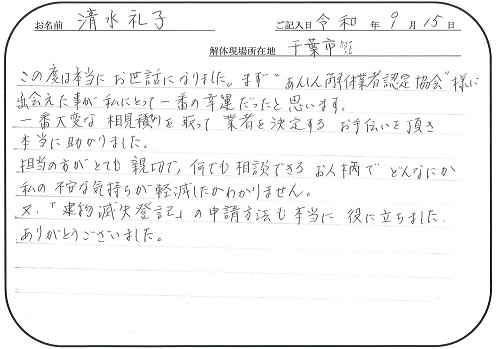 お名前 清水礼子 ご記入日 令和 年 9 月 15 日
解体現場所在地 千葉市
この度は本当に お世話になりました。まず "あんしん解体業者認定協会" 様に
出会えた事が 私にとって 一番の幸運だったと思います。
一番大変な 相見積りを取って 業者を決定する お手伝いを頂き
本当に助かりました。
担当の方がとても 親切で、何でも相談できる お人柄で どんなにか
私の 不安な気持ちが 軽減したかわかりません。
又、「建物滅失登記」の申請方法も本当に 役に立ちました。
ありがとうございました。